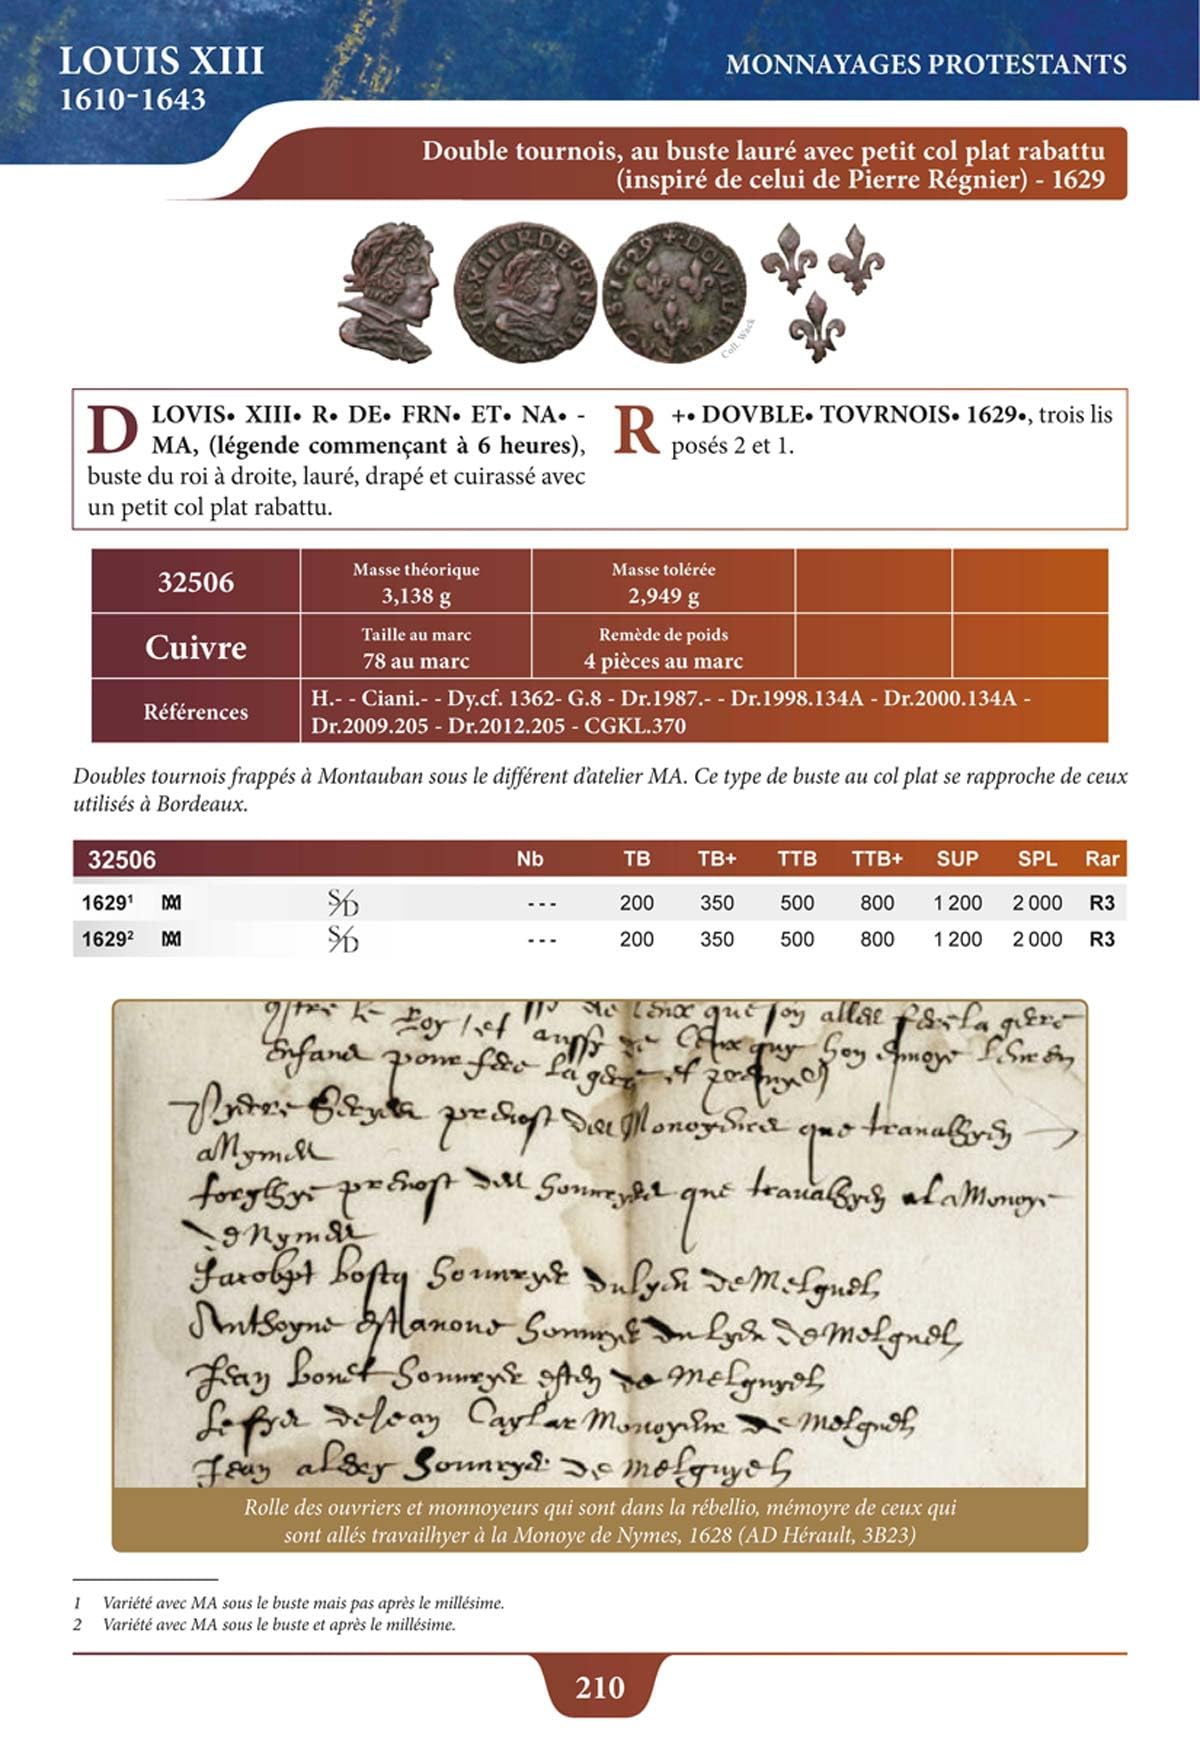 LOUIS XIII
1610-1643
MONNAYAGES PROTESTANTS
Double tournois, au buste lauré avec petit col plat rabattu
(inspiré de celui de Pierre Régnier) - 1629
Coll. Wack
D LOVIS• XIII• R• DE• FRN• ET• NA• -
MA, (légende commençant à 6 heures),
buste du roi à droite, lauré, drapé et cuirassé avec
un petit col plat rabattu.
R +• DOVBLE• TOVRNOIS• 1629•, trois lis
posés 2 et 1.
32506 Masse théorique Masse tolérée
3,138 g 2,949 g
Cuivre Taille au marc Remède de poids
78 au marc 4 pièces au marc
Références H.- - Ciani.- - Dy.cf. 1362- G.8 - Dr.1987.- - Dr.1998.134A - Dr.2000.134A -
Dr.2009.205 - Dr.2012.205 - CGKL.370
Doubles tournois frappés à Montauban sous le différent d'atelier MA. Ce type de buste au col plat se rapproche de ceux
utilisés à Bordeaux.
32506 Nb TB TB+ TTB TTB+ SUP SPL Rar
1629¹ MA S/D --- 200 350 500 800 1 200 2 000 R3
1629² MA S/D --- 200 350 500 800 1 200 2 000 R3
de Melguel
de Melguel
Jean Bonet de Melguyel
de Jean Caylar Monoyeur de Melguel
Jean de Melguyel
Rolle des ouvriers et monnoyeurs qui sont dans la rébellio, mémoyre de ceux qui
sont allés travailhyer à la Monoye de Nymes, 1628 (AD Hérault, 3B23)
1 Variété avec MA sous le buste mais pas après le millésime.
2 Variété avec MA sous le buste et après le millésime.
210